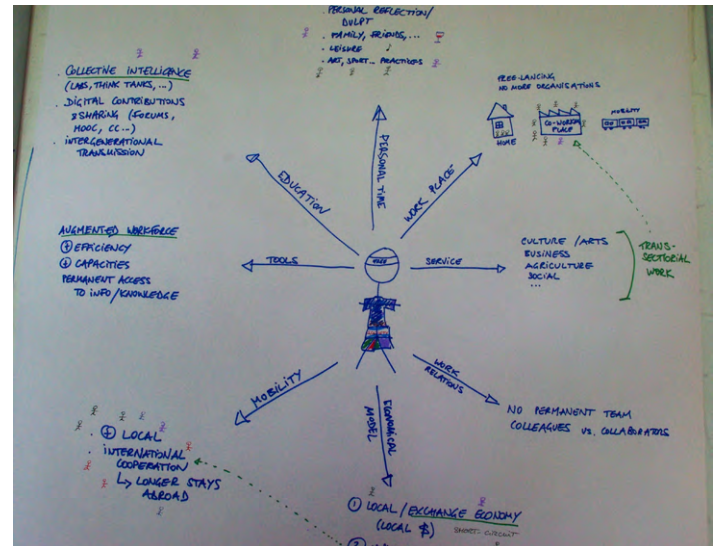 . PERSONAL REFLECTION/
DVLPT
. FAMILY, FRIENDS, ...
. LEISURE
. ART, SPORT... PRACTICES
. COLLECTIVE INTELLIGENCE
(LABS, THINK TANKS, ...)
. DIGITAL CONTRIBUTIONS
& SHARING (FORUMS,
MOOC, CC...)
. INTERGENERATIONAL
TRANSMISSION
FREE-LANCING
NO MORE ORGANISATIONS
HOME
CO-WORKING
PLACE
MOBILITY
EDUCATION
PERSONAL TIME
WORK PLACE
AUGMENTED WORKFORCE
+ EFFICIENCY
+ CAPACITIES
PERMANENT ACCESS
TO INFO/KNOWLEDGE
TOOLS
SERVICE
CULTURE / ARTS
BUSINESS
AGRICULTURE
SOCIAL
...
TRANS-
SECTORIAL
WORK
MOBILITY
ECONOMICAL
MODEL
WORK
RELATIONS
NO PERMANENT TEAM
COLLEAGUES VS. COLLABORATORS
. + LOCAL
. INTERNATIONAL
COOPERATION
↳ LONGER STAYS
ABROAD
① LOCAL / EXCHANGE ECONOMY
(LOCAL $) SHORT-CIRCUIT
②